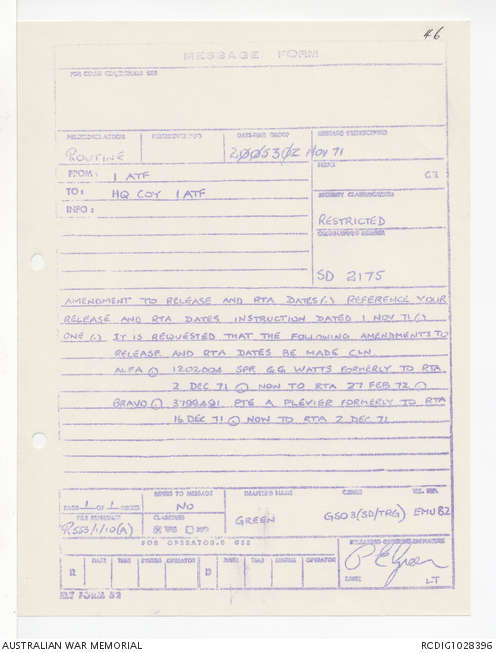 46
MESSAGE FORM
PRECEDENCE-ACTION
DATE-TIME GROUP
MESSAGE INSTRUCTIONS
ROUTINE
200530Z NOV 71
FROM: 1 ATF
PREFIX
G3
TO: HQ COY 1 ATF
SECURITY CLASSIFICATION
INFO:
RESTRICTED
ORIGINATOR'S NUMBER
SD 2175
AMENDMENT TO RELEASE AND RTA DATES (.) REFERENCE YOUR
RELEASE AND RTA DATES INSTRUCTION DATED 1 NOV 71 (.)
ONE (.) IT IS REQUESTED THAT THE FOLLOWING AMENDMENTS TO
RELEASE AND RTA DATES BE MADE CLN
ALFA (.) 1202004 SPR G.G WATTS FORMERLY TO RTA
2 DEC 71 (.) NOW TO RTA 27 FEB 72 (.)
BRAVO (.) 3799491 PTE A PLEVIER FORMERLY TO RTA
16 DEC 71 (.) NOW TO RTA 2 DEC 71
PAGE 1 OF 1 PAGES
REFERS TO MESSAGE
NO
DRAFTER'S NAME
OFFICE
TEL. NO.
FILE REFERENCE
R553/1/10(A)
CLASSIFIED
YES NO
GREEN
GSO3(SD/TRG)
EMU 82
FOR OPERATOR'S USE
R DATE TIME SYSTEM OPERATOR D DATE TIME SYSTEM OPERATOR
RANK: LT
AUSTRALIAN WAR MEMORIAL
RCDIG1028396